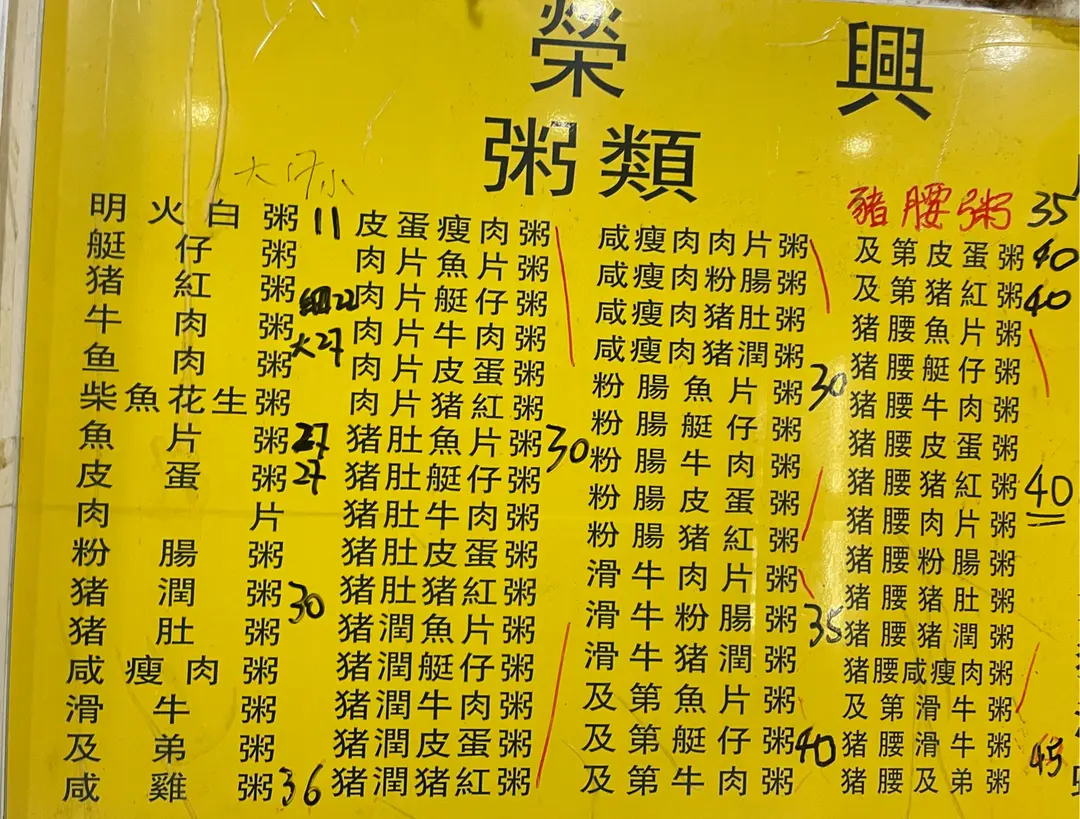 榮 興
粥類
大 17 小
明火白粥 11
艇仔粥
猪紅粥
牛肉粥 細22
鱼肉粥 大27
柴魚花生粥
魚片粥 27
皮蛋粥 27
肉片
粉腸粥
猪潤粥 30
猪肚粥
咸瘦肉粥
滑牛粥
及弟粥
咸雞粥 36
皮蛋瘦肉粥
肉片魚片粥
肉片艇仔粥
肉片牛肉粥
肉片皮蛋粥
肉片猪紅粥
猪肚魚片粥 30
猪肚艇仔粥
猪肚牛肉粥
猪肚皮蛋粥
猪肚猪紅粥
猪潤魚片粥
猪潤艇仔粥
猪潤牛肉粥
猪潤皮蛋粥
猪潤猪紅粥
咸瘦肉肉片粥
咸瘦肉粉腸粥
咸瘦肉猪肚粥
咸瘦肉猪潤粥
粉腸魚片粥 30
粉腸艇仔粥
粉腸牛肉粥
粉腸皮蛋粥
粉腸猪紅粥
滑牛肉片粥
滑牛粉腸粥 35
滑牛猪潤粥
及第魚片粥
及第艇仔粥 40
及第牛肉粥
豬腰粥 35
及第皮蛋粥 40
及第猪紅粥 40
猪腰魚片粥
猪腰艇仔粥
猪腰牛肉粥
猪腰皮蛋粥
猪腰猪紅粥 40
猪腰肉片粥
猪腰粉腸粥
猪腰猪肚粥
猪腰猪潤粥
猪腰咸瘦肉粥
及第滑牛粥
猪腰滑牛粥 45
猪腰及弟粥